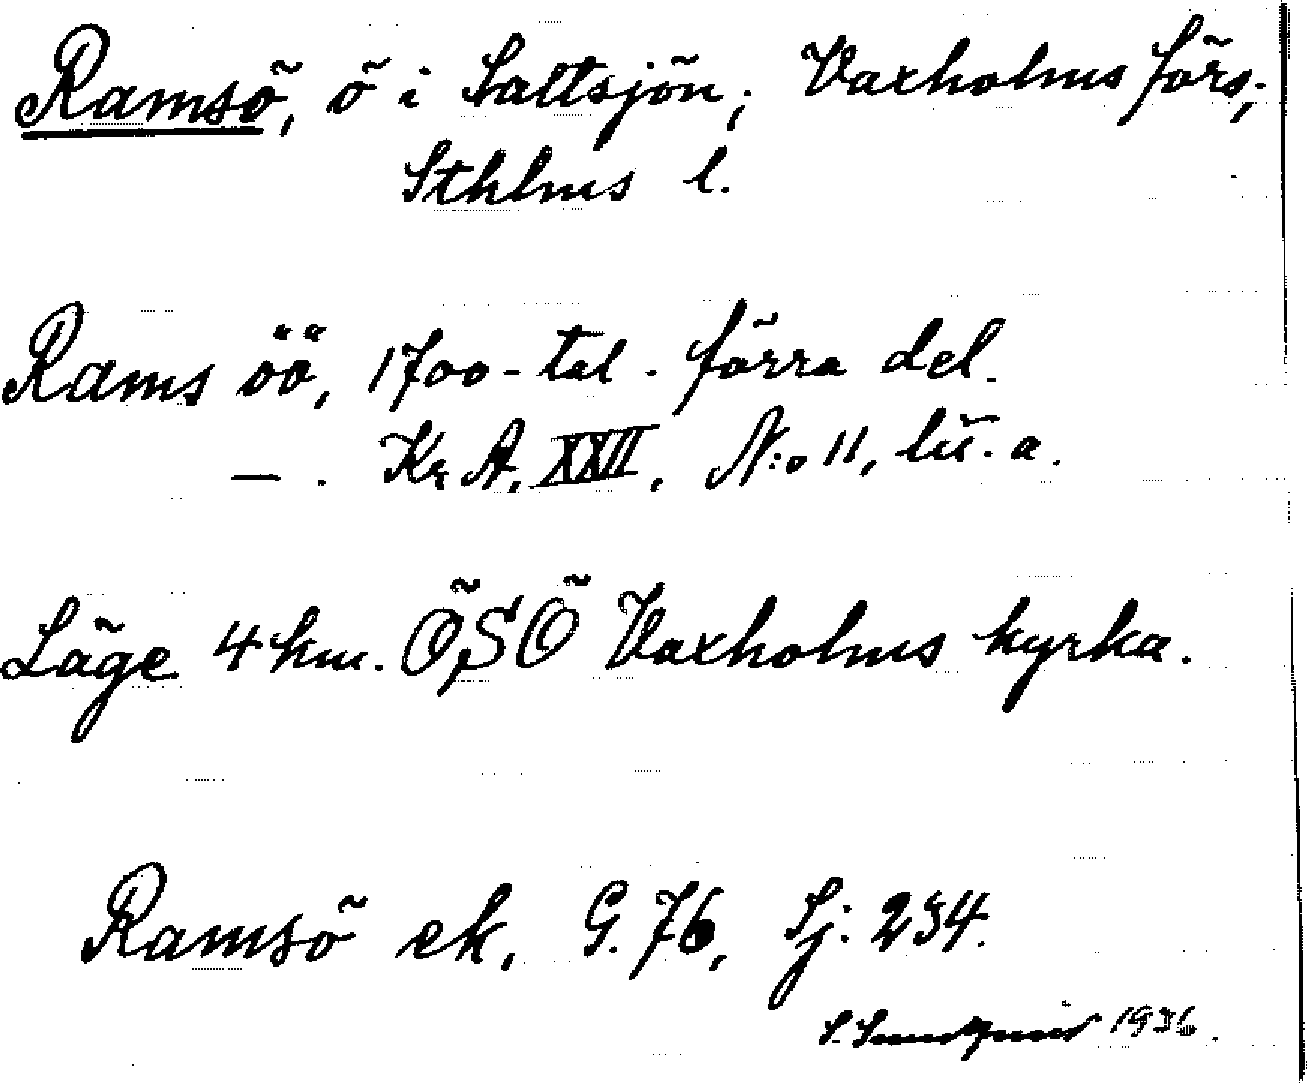 Ramsö, ö i Saltsjön; Vaxholms förs;
Sthlms l.
Rams öö, 1700-tal. förra del.
— . Kr A. XXII, N:o 11, lit. a.
Läge 4 km. ÖSÖ Vaxholms kyrka.
Ramsö ek. G. 76, Sj: 234.
S. Sundquist 1936.